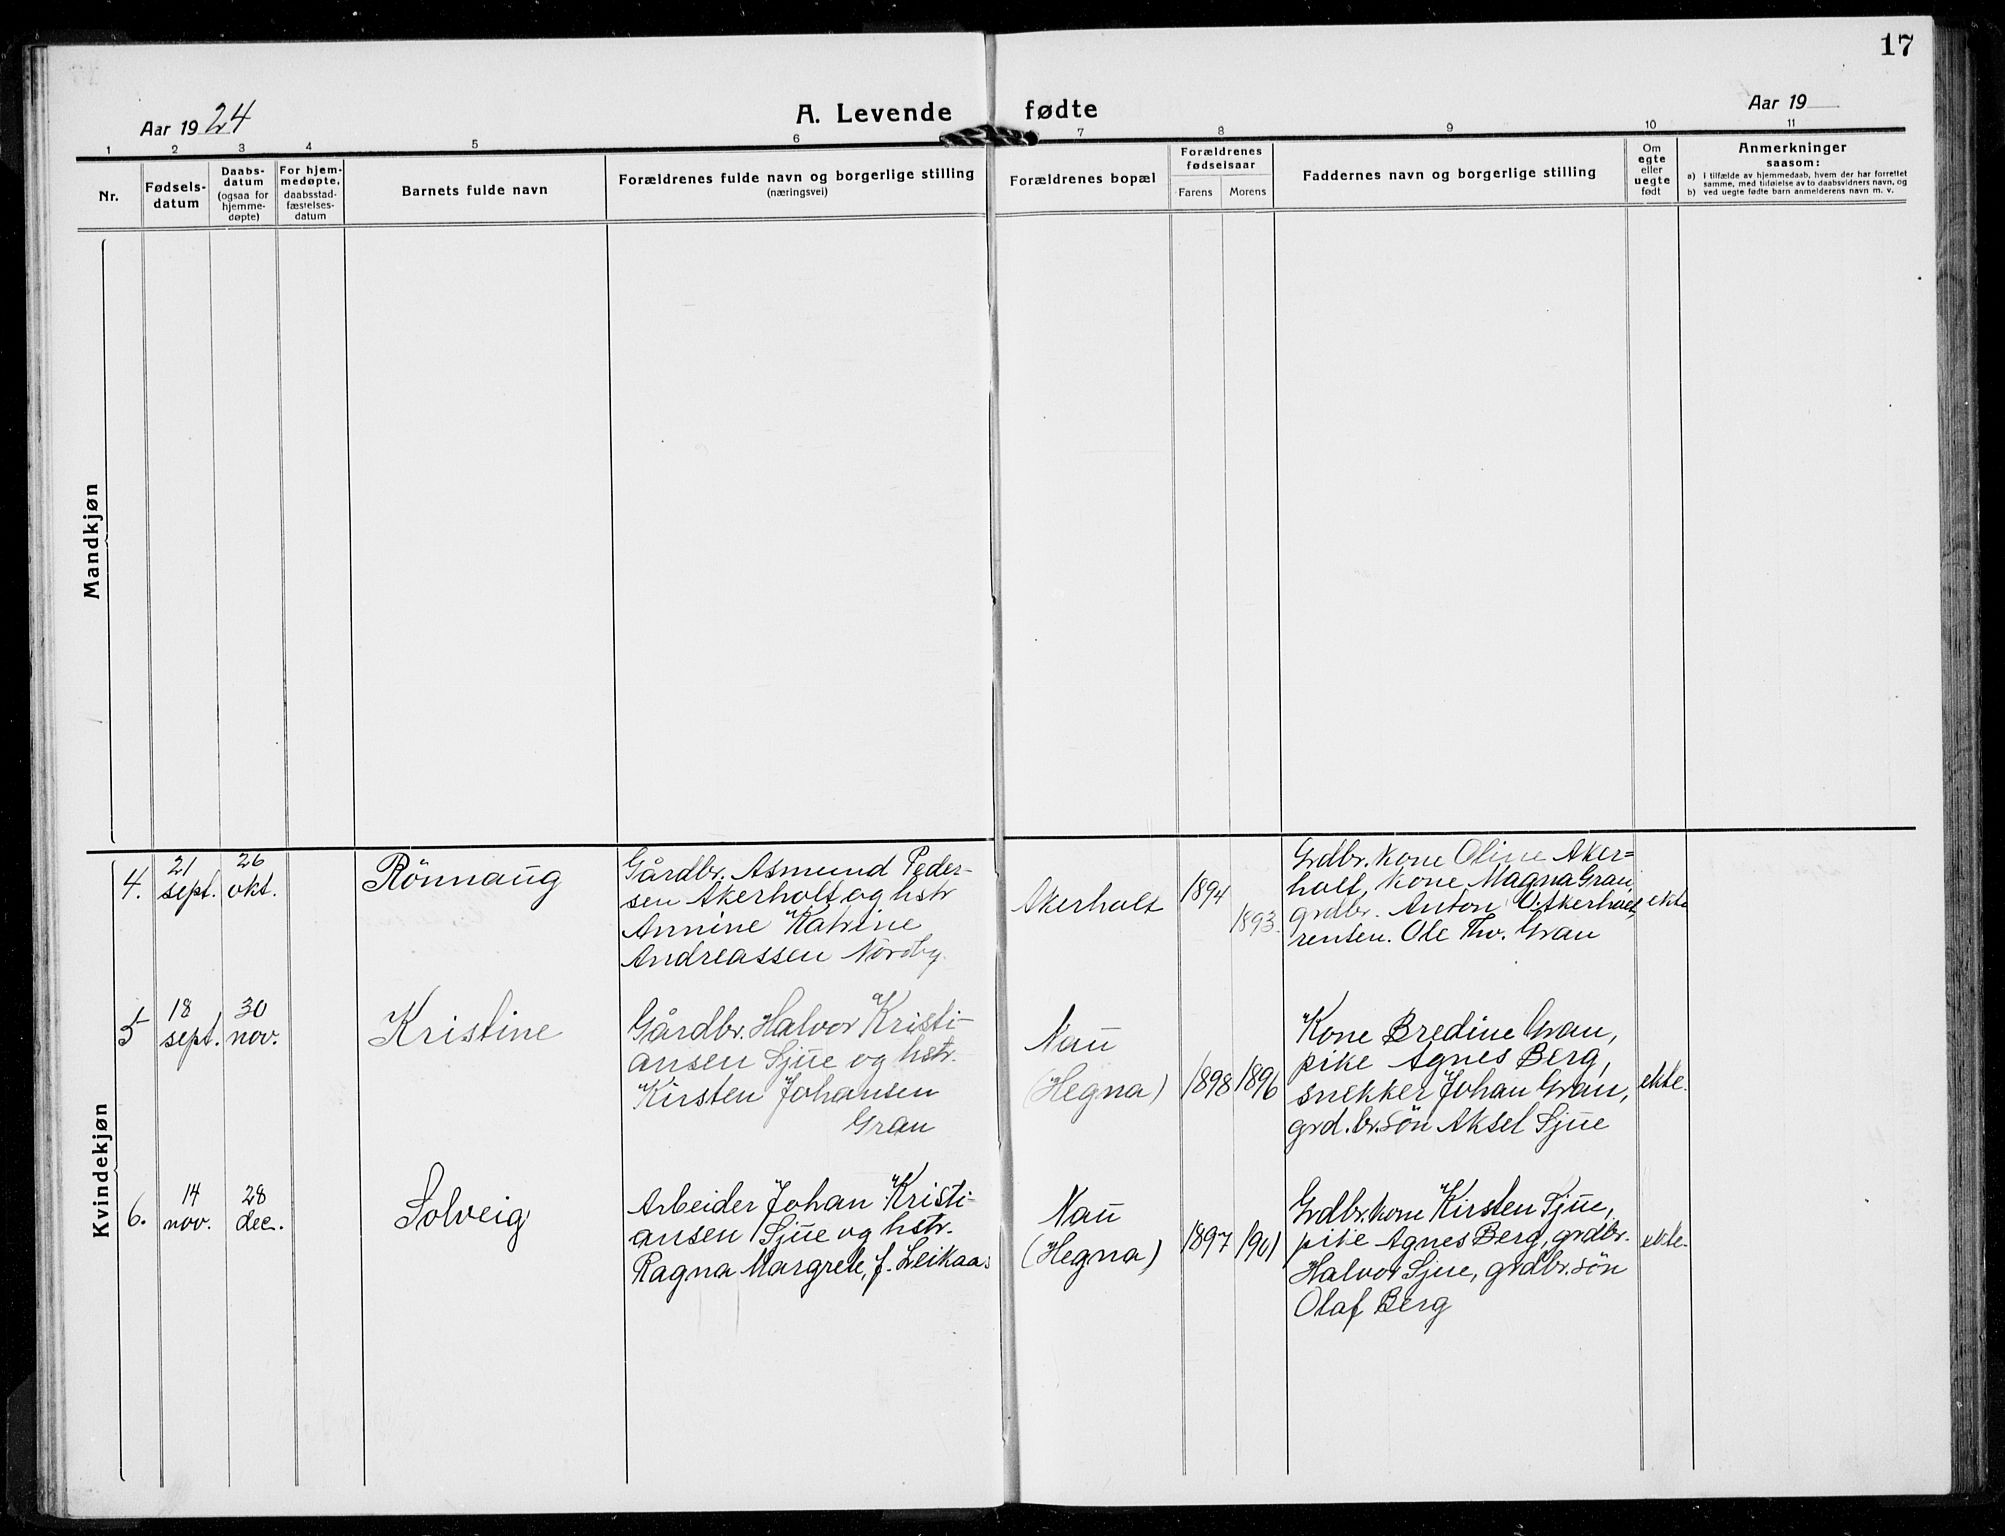 17
Aar 1924
A. Levende fødte
Aar 19
1 2 3 4 5 6 7 8 9 10 11
Nr.
Fødsels-
datum
Daabs-
datum
(ogsaa for
hjemme-
døpte)
For hjem-
medøpte,
daabsstad-
fæstelses-
datum
Barnets fulde navn
Forældrenes fulde navn og borgerlige stilling
(næringsvei)
Forældrenes bopæl
Forældrenes
fødselsaar
Farens Morens
Faddernes navn og borgerlige stilling
Om
egte
eller
uegte
født
Anmerkninger
saasom:
a) i tilfælde av hjemmedaab, hvem der har forrettet
samme, med tilføielse av to daabsvidners navn, og
b) ved uegte fødte barn anmelderens navn m. v.
Mandkjøn
Kvindekjøn
4.
21
sept.
26
okt.
Rönnaug
Gårdbr. Asmund Peder-
sen Akerholt og hstr
Annine Katrine
Andreassen Nordby.
Akerholt
1894
1893.
Grdbr. kone Oline Aker=
holt, kone Magna Gran,
grdbr. Anton Akerholt,
renten. Ole Thv. Gran
ekte
5
18
sept.
30
nov.
Kristine
Gårdbr. Halvor Kristi-
ansen Sjue og hstr.
Kirsten Johansen
Gran
Nau
(Hegna)
1898
1896
Kone Bredine Gran,
pike Agnes Berg,
snekker Johan Gran,
grd.br.sön Aksel Sjue
ekte.
6.
14
nov.
28
dec.
Solveig
Arbeider Johan Kristi-
ansen Sjue og hstr.
Ragna Margrete, f. Leikaas
Nau
(Hegna)
1897
1901
Grdbr.kone Kirsten Sjue,
pike Agnes Berg, grdbr.
Halvor Sjue, grdbr.sön
Olaf Berg
ekte.